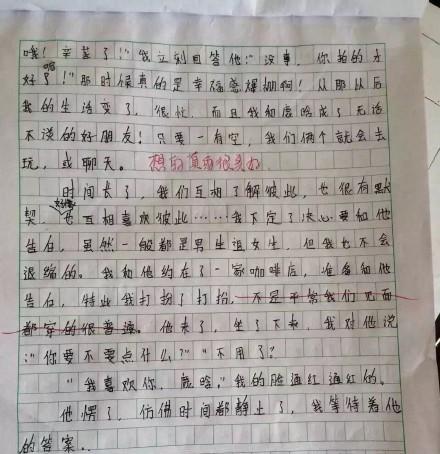 哦！辛苦了！"我立刻回答他："没事，你拍的才
好了！"那时候真的是幸福感爆棚啊！从那从后
我的生活变了，很忙，而且我和鹿晗成了无话
不说的好朋友！只要一有空，我们俩个就会去
玩，或聊天。想的真而很美好
时间长了，我们互相了解彼此，也很有默
契，也互相喜欢彼此……我下定了决心要和他
告白，虽然一般都是男生追女生，但我也不会
退缩的。我和他约在了一家咖啡店，准备和他
告白，特此我打扮了打扮，不是平常我们见面
都穿的很普通。他来了，坐了下来，我对他说
："你要不要点什么？""不用了？
"我喜欢你，鹿晗，"我的脸通红通红的。
他愣了，仿佛时间都静止了，我等待着他
的答案..